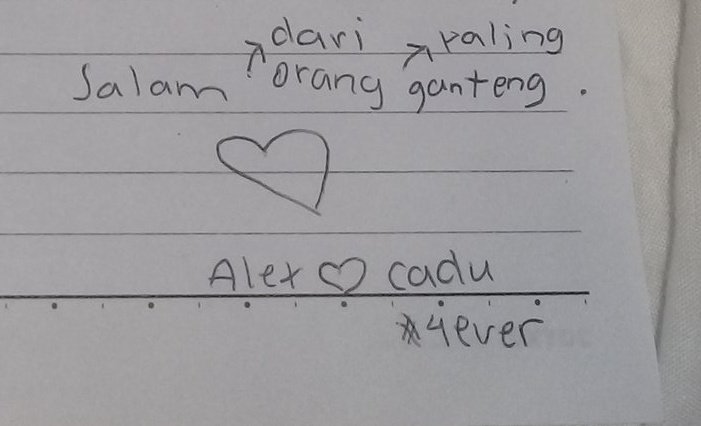 dari paling
Salam orang ganteng.
Alex ♡ cadu
#4ever